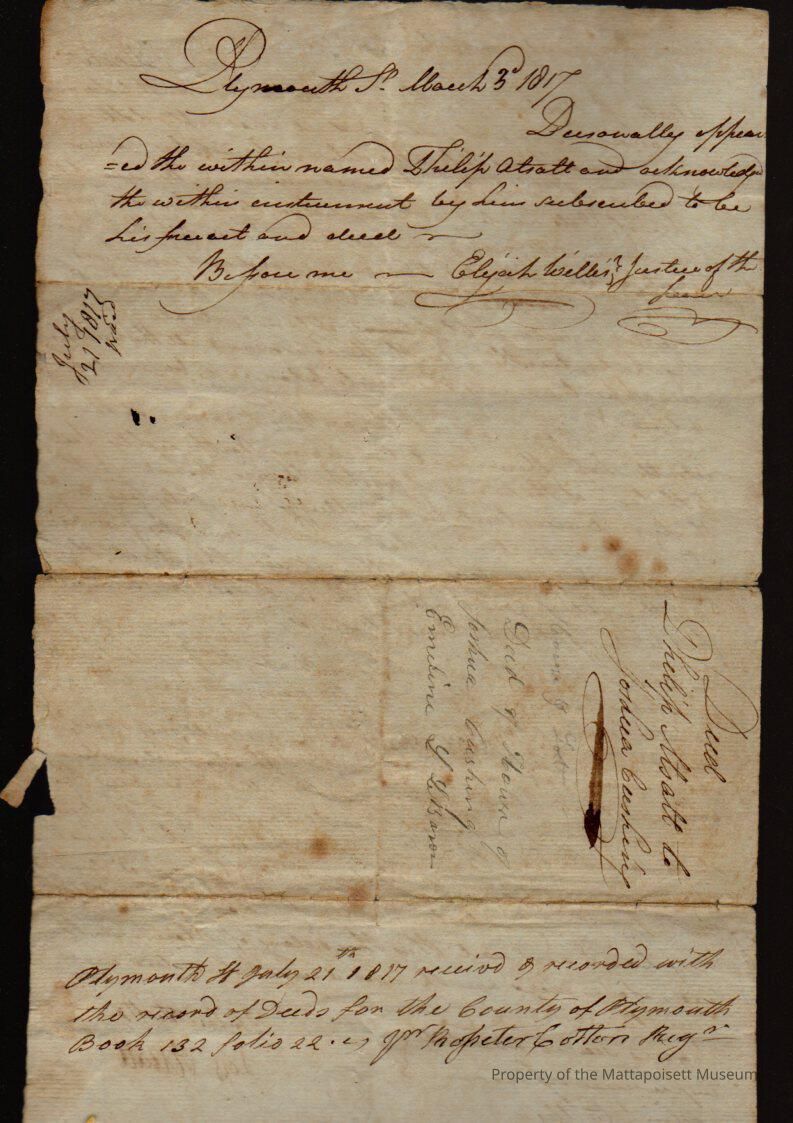 Plymouth Ss. March 3d 1817
Personally appear
=ed the within named Philip Atsatt and acknowledged
the within instrument by him subscribed to be
his free act and deed
Before me — Elijah Willis Justice of the
Peace
July
21 1817
Deed
Philip Atsatt to
Joshua Cushing
Deed of
Joshua Cushing
Emeline L LeBaron
Plymouth Ss July 21th 1817 receivd & recorded with
the record of Deeds for the County of Plymouth
Book 132 folio 22. pr Rosseter Cotton Regr
Property of the Mattapoisett Museum